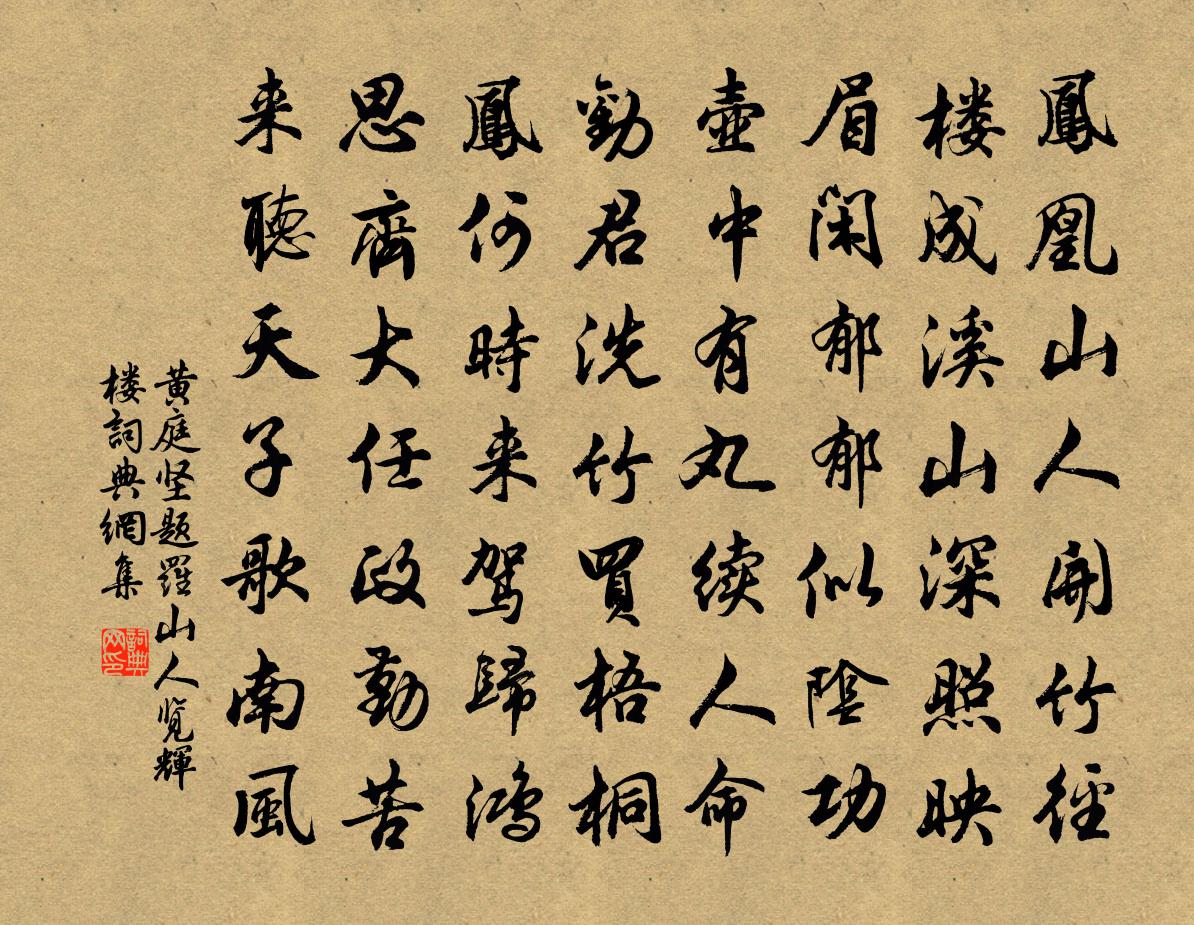 鳳凰山人開竹徑
楼成溪山深照映
眉間郁郁似陰功
壺中有丸续人命
勸君洗竹買梧桐
鳳何時来駕歸鴻
思齊大任政勤苦
来聽天子歌南風
黄庭坚題羅山人览輝
楼詞典網集
詞典
网印